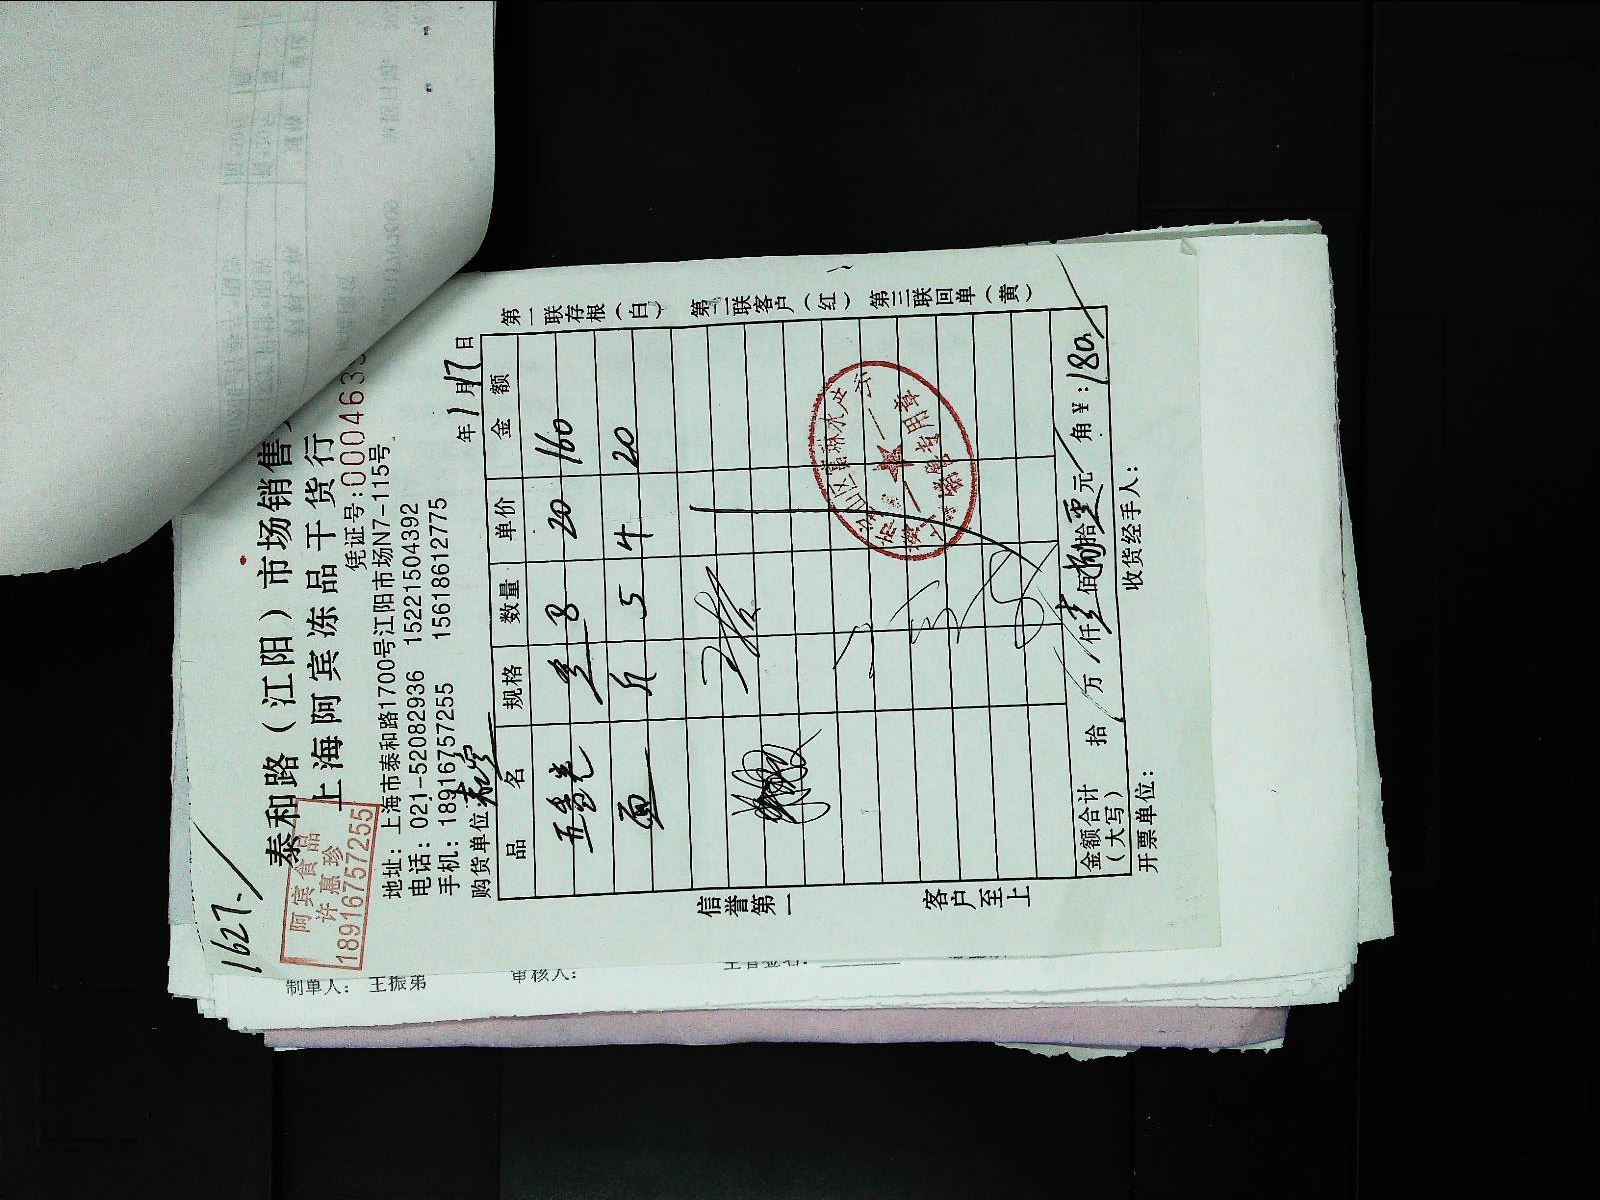 1627.
阿宾食品
许惠珍
18916757255
泰和路（江阳）市场销售
上海阿宾冻品干货行
凭证号:000463
地址: 上海市泰和路1700号江阳市场N7-115号
电话: 021-52082936 15221504392
手机: 18916757255 15618612775
购货单位: 年 1 月 17 日
品 名 规格 数量 单价 金 额
8 20 160
面 5 4 20
金额合计（大写） 拾 万 仟 壹 佰 捌 拾 零 元 角 ¥: 180
开票单位: 收货经手人:
信誉第一 客户至上
第一联存根（白） 第二联客户（红） 第三联回单（黄）
制单人: 王振弟 审核人: